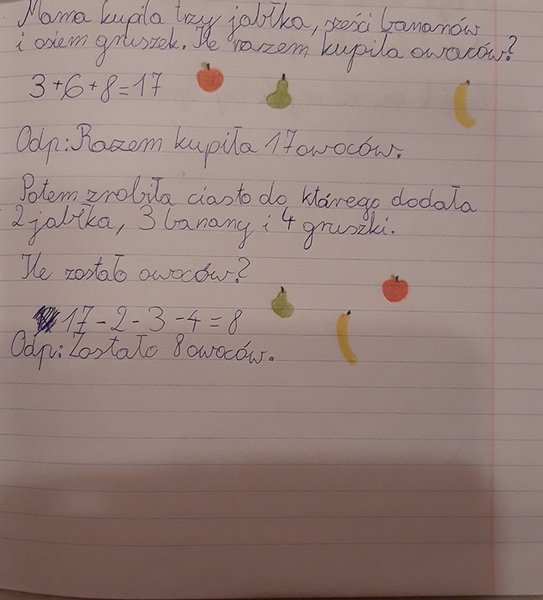 Mama kupiła trzy jabłka, sześć bananów
i osiem gruszek. Ile razem kupiła owoców?
3+6+8=17
Odp.: Razem kupiła 17 owoców.
Potem zrobiła ciasto do którego dodała
2 jabłka, 3 banany i 4 gruszki.
Ile zostało owoców?
17-2-3-4=8
Odp.: Zostało 8 owoców.